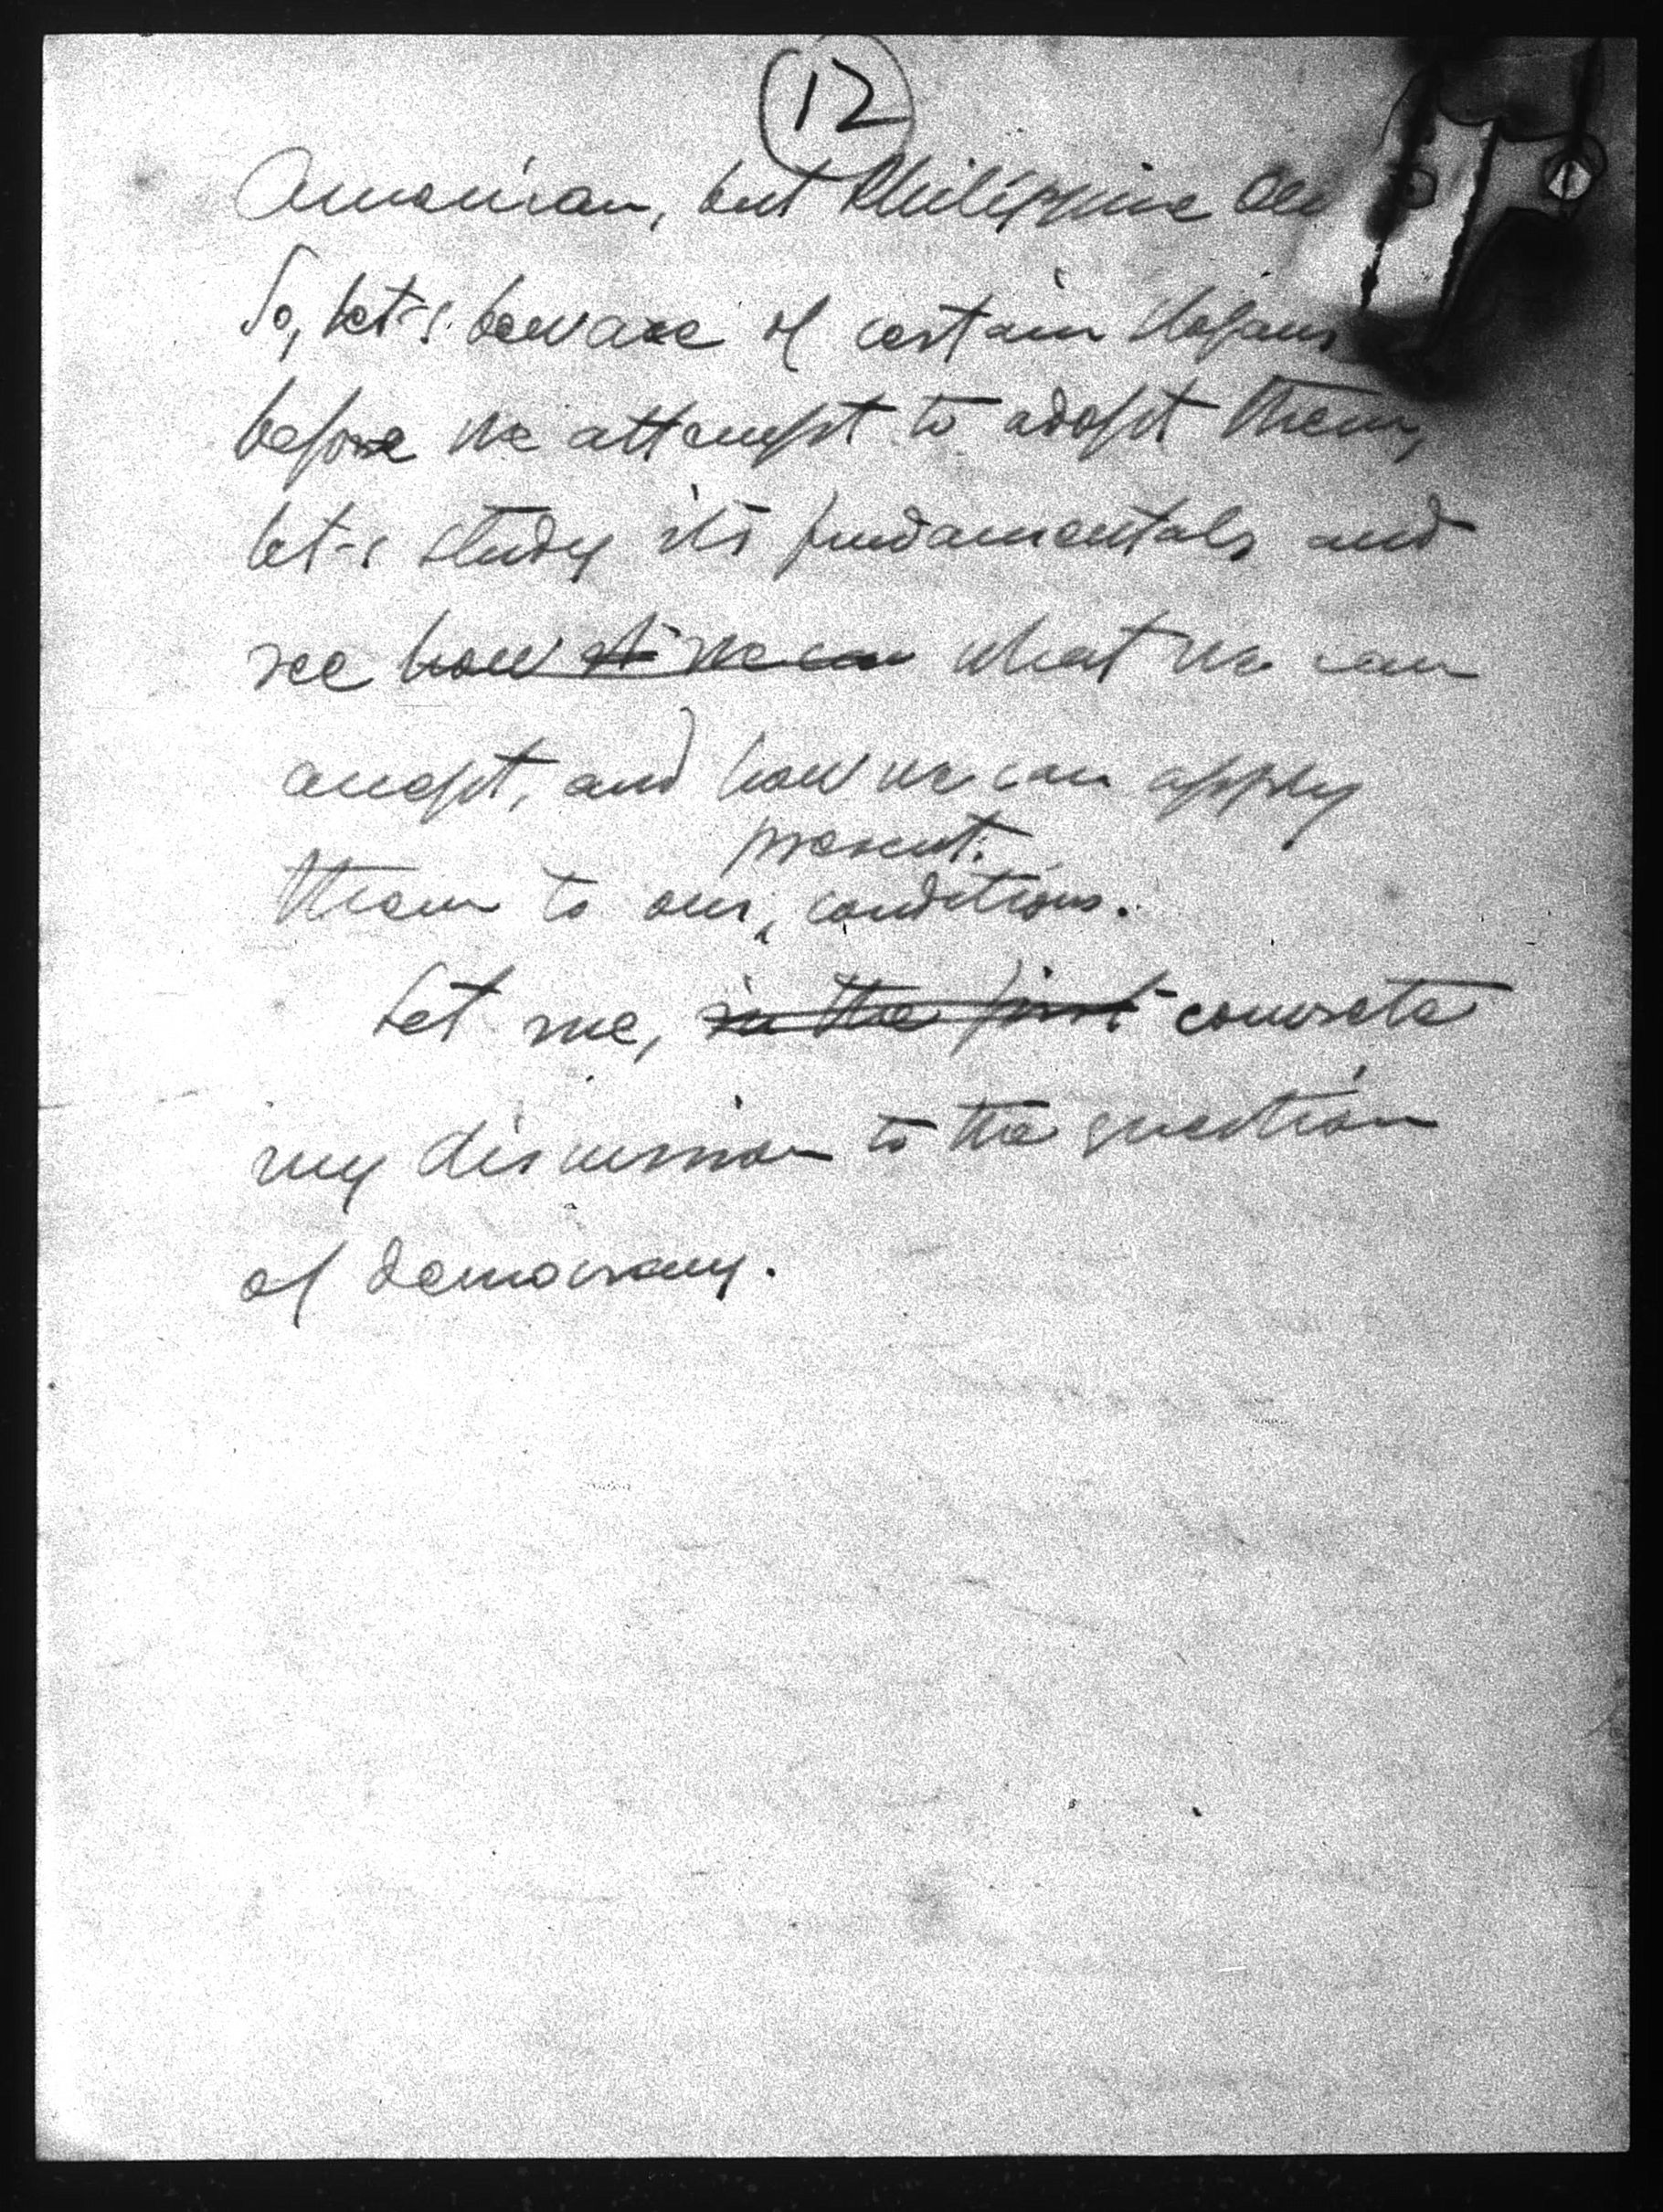 12
American, but Philippine
So, let-s beware of certain slogans
before we attempt to adopt them,
let-s study its fundamentals and
see how it we can what we can
accept, and how we can apply
present
them to our conditions.
Let me, in the first concrete
my discussion to the question
of democracy.